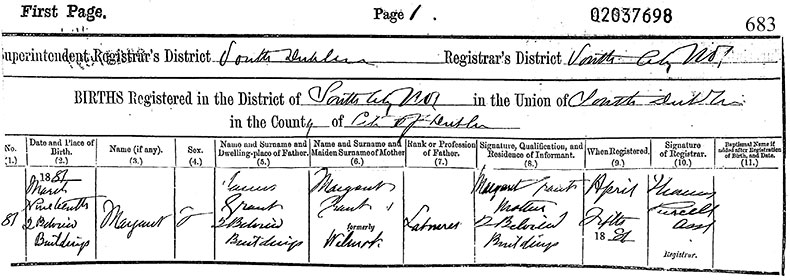 First Page.
Page 1.
Q2037698
683
Superintendent Registrar's District South Dublin
Registrar's District South City No 1
BIRTHS Registered in the District of South City No 1 in the Union of South Dublin
in the County of City of Dublin
No. (1.)
Date and Place of Birth. (2.)
Name (if any). (3.)
Sex. (4.)
Name and Surname and Dwelling-place of Father. (5.)
Name and Surname and Maiden Surname of Mother (6.)
Rank or Profession of Father. (7.)
Signature, Qualification, and Residence of Informant. (8.)
When Registered. (9.)
Signature of Registrar. (10.)
Baptismal Name if added after Registration of Birth, and Date. (11.)
81
1881
March
Nineteenth
2
Buildings
Margaret
James
Grant
2
Buildings
Margaret
Grant
formerly
Labourer
Margaret Grant
Mother
2
Buildings
April
Fifth
1881
Thomas
Purcell
Asst
Registrar.